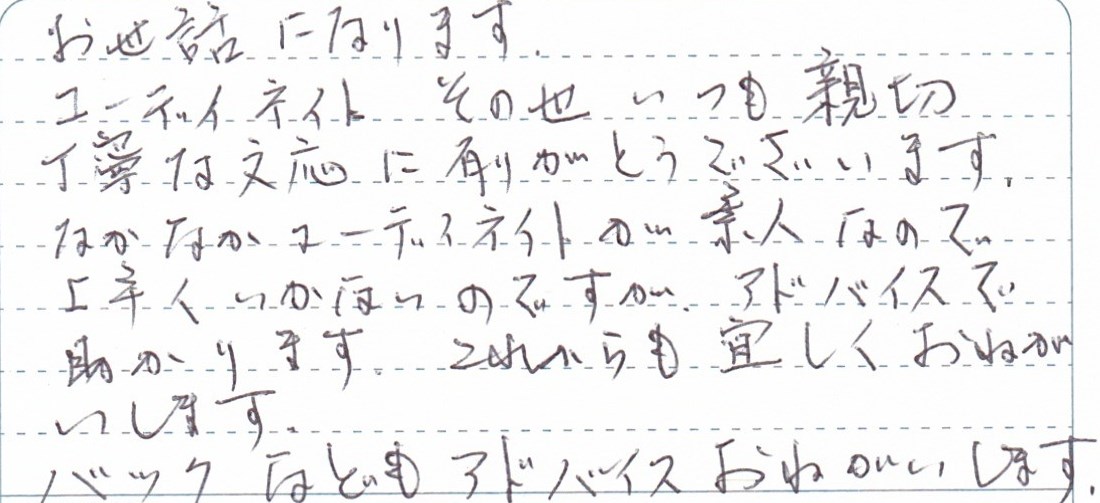 お世話になります.
コーディネイト その他 いつも 親切
丁寧な文応に有りがとうございます.
なかなかコーディネイトが素人なので
上手くいかないのですが.アドバイスで
助かります. これからも宜しくおねが
いします.
バックなどもアドバイスおねがいします.